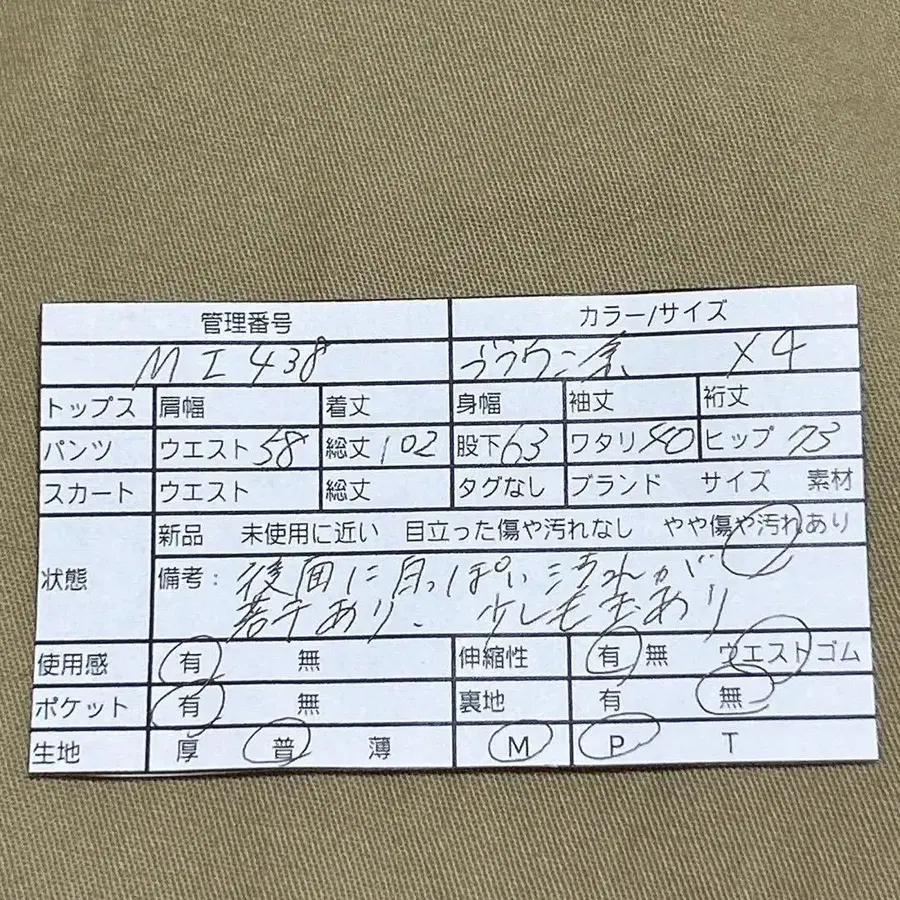 管理番号 カラー/サイズ
MI438 X4
トップス 肩幅 着丈 身幅 袖丈 裄丈
パンツ ウエスト58 総丈102 股下63 ワタリ40 ヒップ75
スカート ウエスト 総丈 タグなし ブランド サイズ 素材
状態 新品 未使用に近い 目立った傷や汚れなし やや傷や汚れあり
備考: 後面に白っぽい汚れが
若干あり、少し毛玉あり
使用感 有 無 伸縮性 有 無 ウエストゴム
ポケット 有 無 裏地 有 無
生地 厚 普 薄 M P T